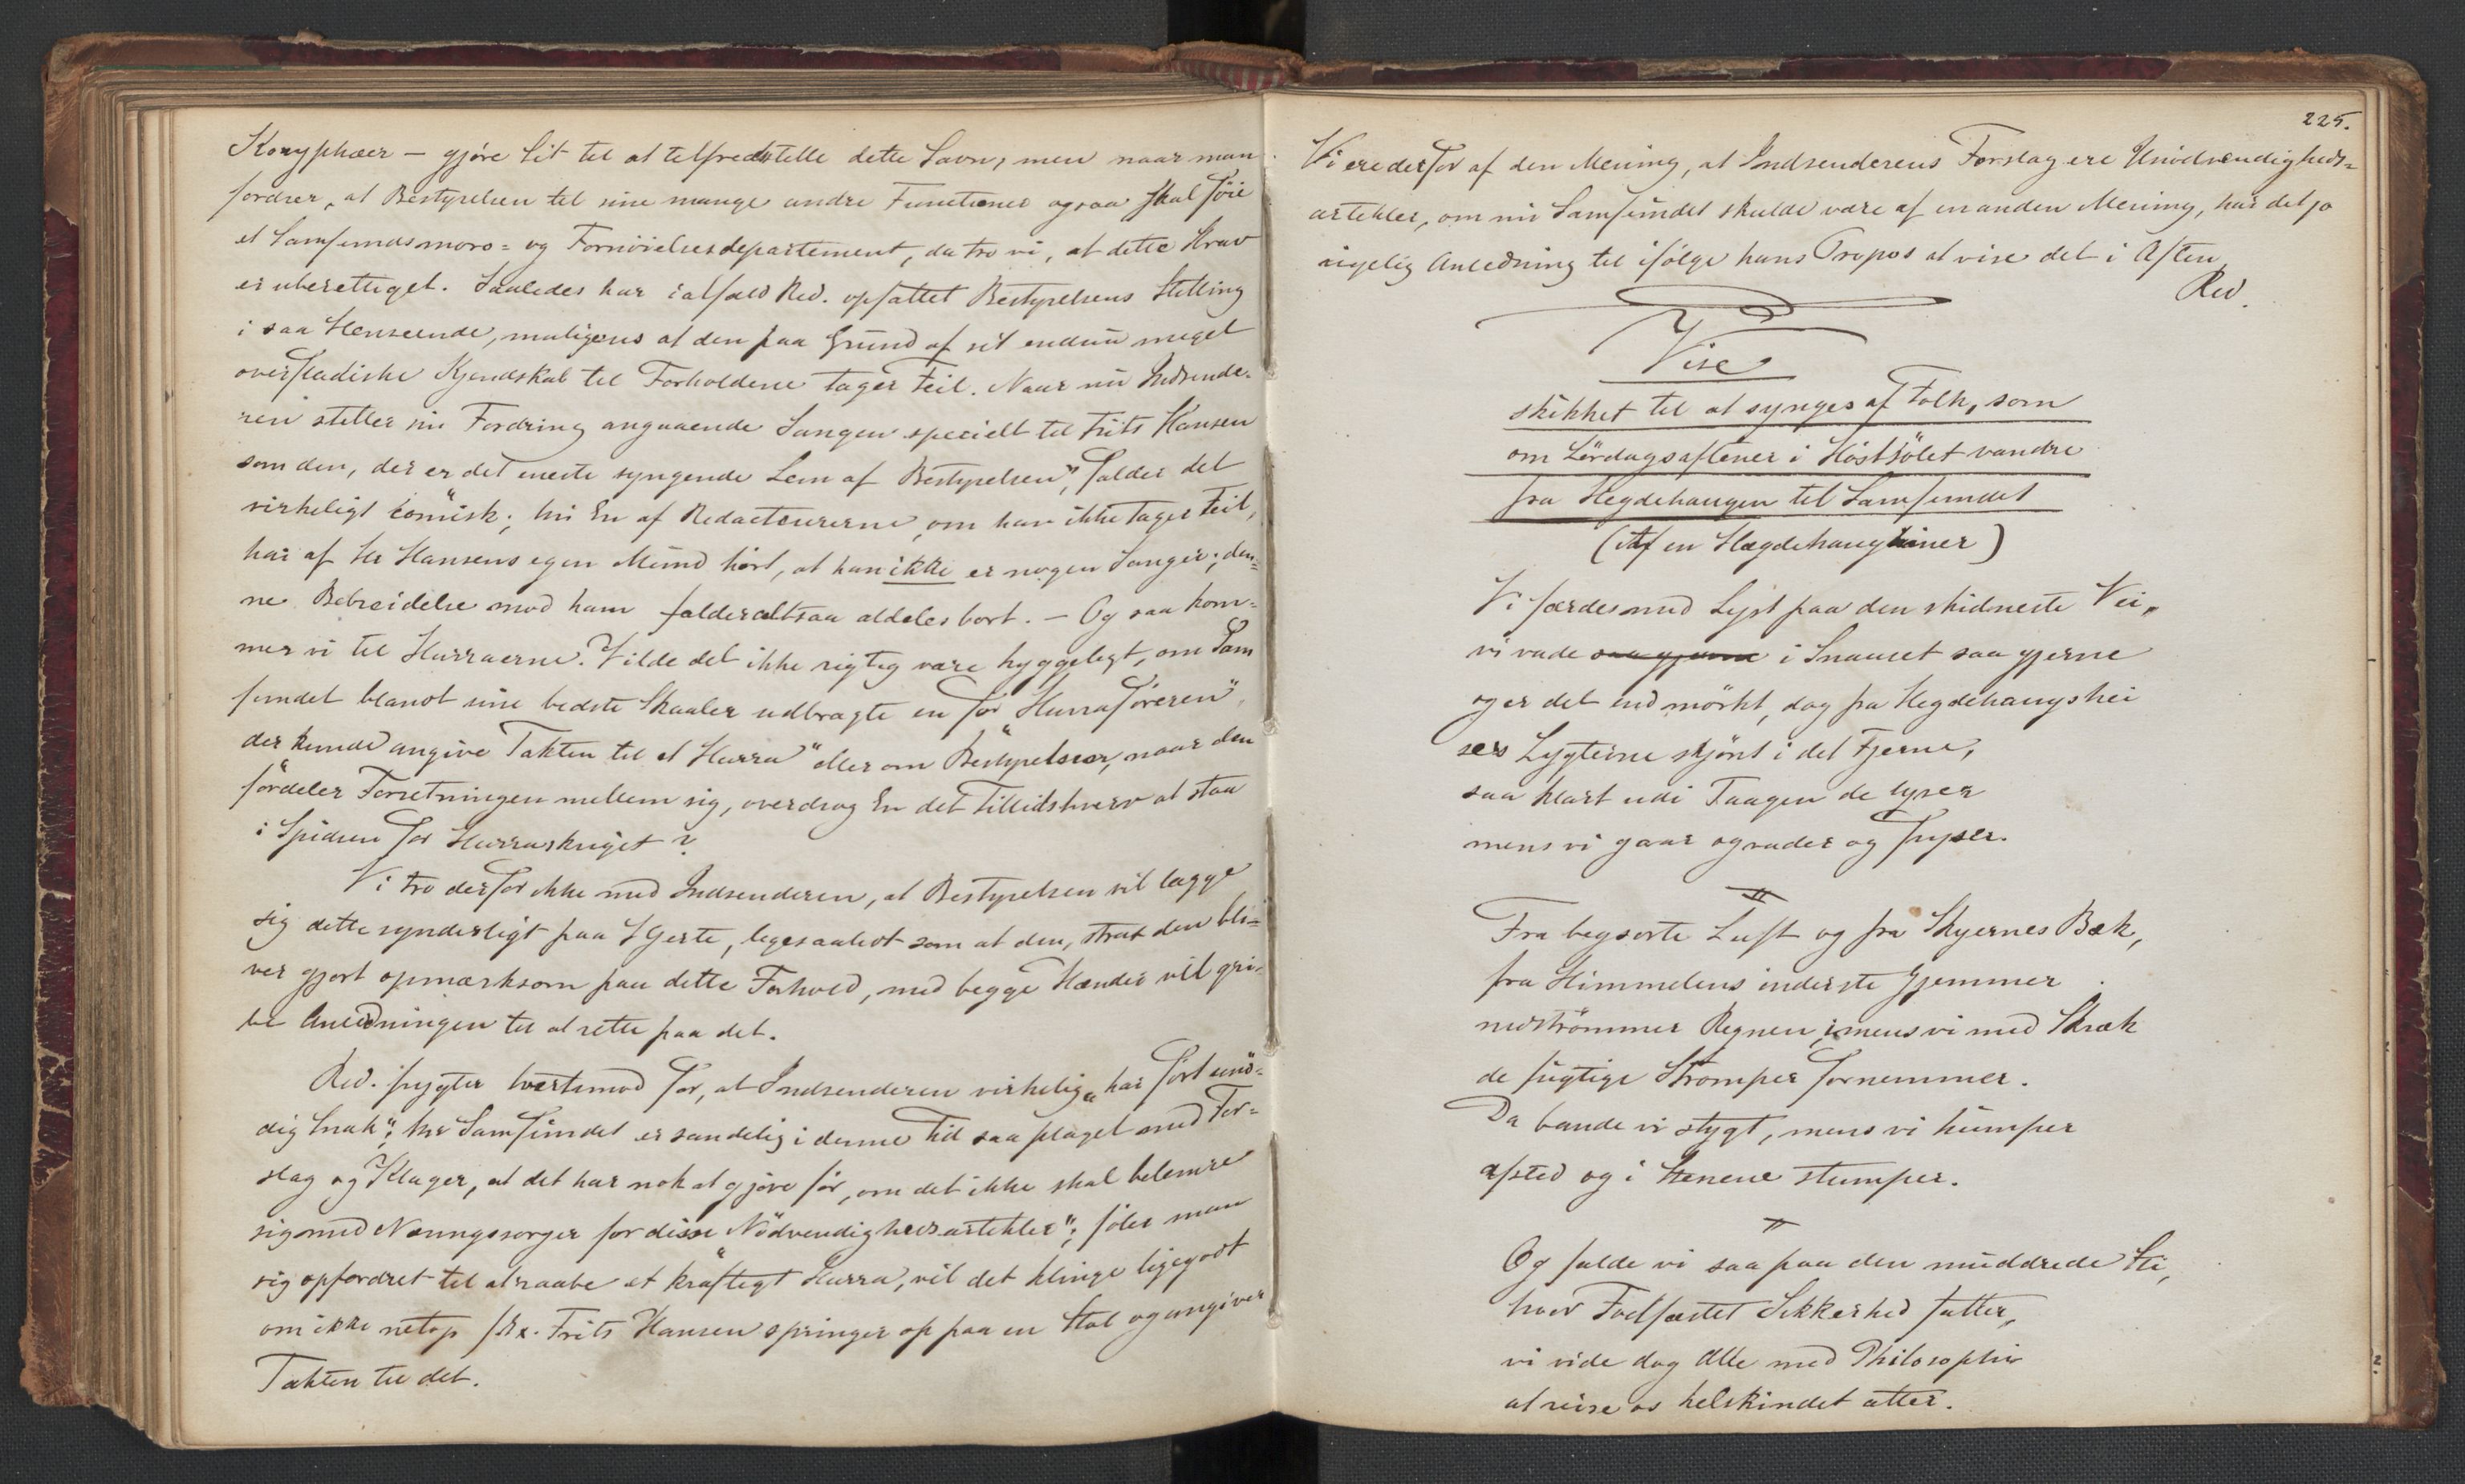 Koryphæer — gjøre Sit til at tilfredsstille dette Savn, men naar man
fordrer, at Bestyrelsen til sine mange andre Functioner ogsaa skal föie
et Samfundsmoro= og Fornöielsesdepartement, da tro vi, at dette Krav
er uberettiget. Saaledes har ialfald Red. opfattet Bestyrelsens Stilling
i saa Henseende, muligens at den paa Grund af sit endnu meget
overfladiske Kjendskab til Forholdene tager Feil. Naar nu Indsende-
ren stiller sin Fordring angaaende Sangen specielt til Frits Hansen
som den, der er det eneste syngende Lem af Bestyrelsen", falder det
virkeligt comisk; thi En af Redacteurerne, om han ikke tager Feil,
har af Hr Hansens egen Mund hört, at han ikke er nogen Sanger; den=
ne Bebreidelse mod ham falder altsaa aldeles bort. — Og saa kom=
mer vi til Hurraerne. Vilde det ikke rigtig være hyggeligt, om Sam
fundet blandt sine bedste Skaaler udbragte en for "Hurraföreren",
der kunde angive Takten til et Hurra" eller om Bestyrelsen, naar den
fördeler Forretningen mellem sig, overdrog En det Tillidshverv at staa
i Spidsen for Hurraskriget?
Vi tro derfor ikke med Indsenderen, at Bestyrelsen vil lægge
sig dette synderligt paa Hjerte, ligesaalidt som at den, strax den bli=
ver gjort opmærksom paa dette Forhold, med begge Hænder vil gri=
be Anledningen til at rette paa det.
Red. frygter tvertimod for, at Indsenderen virkelig "har fört unö=
dig Snak"; thi Samfundet er sandelig i denne Tid saa plaget med For=
slag og Klager, at det har nok at gjøre för, om det ikke skal belemre
sig med Næringssorger for disse "Nödvendighedsartikler"; föler man
sig opfordret til at raabe et kraftigt Hurra, vil det klinge ligegodt
om ikke netop f.Ex. Frits Hansen springer op paa en Stol og angiver
Takten til det.
225.
Vi ere derfor af den Mening, at Indsenderens Forslag ere Unödvendigheds=
artikler, om nu Samfundet skulde være af en anden Mening, har det jo
rigelig Anledning til ifölge hans Propos at vise det i Aften
Red.
Vise
skikket til at synges af Folk, som
om Lördagsaftener i Höstsölet vandre
fra Hegdehaugen til Samfundet
(Af en Hægdehaugianer)
Vi færdes med Lyst paa den skidneste Vei,
vi vade saa gjerne i Snauset saa gjerne
og er det end mörkt, dog fra Hegdehaugshei
sees Lygterne skjönt i det Fjerne,
saa klart udi Taagen de lyser
mens vi gaar og vader og fryser.
II
Fra begsorte Luft og fra Skyernes Bæk,
fra Himmelens inderste Gjemmer
nedströmmer Regnen, imens vi med Skræk
de fugtige Strömper fornemmer.
Da bande vi stygt, mens vi humper
afsted og i Stenene stumper.
II
Og falde vi saa paa den muddrede Sti,
hvor Fodfæstet Sikkerhed fatter,
vi vide dog Alle med Philosophie
at reise os helskindet atter.